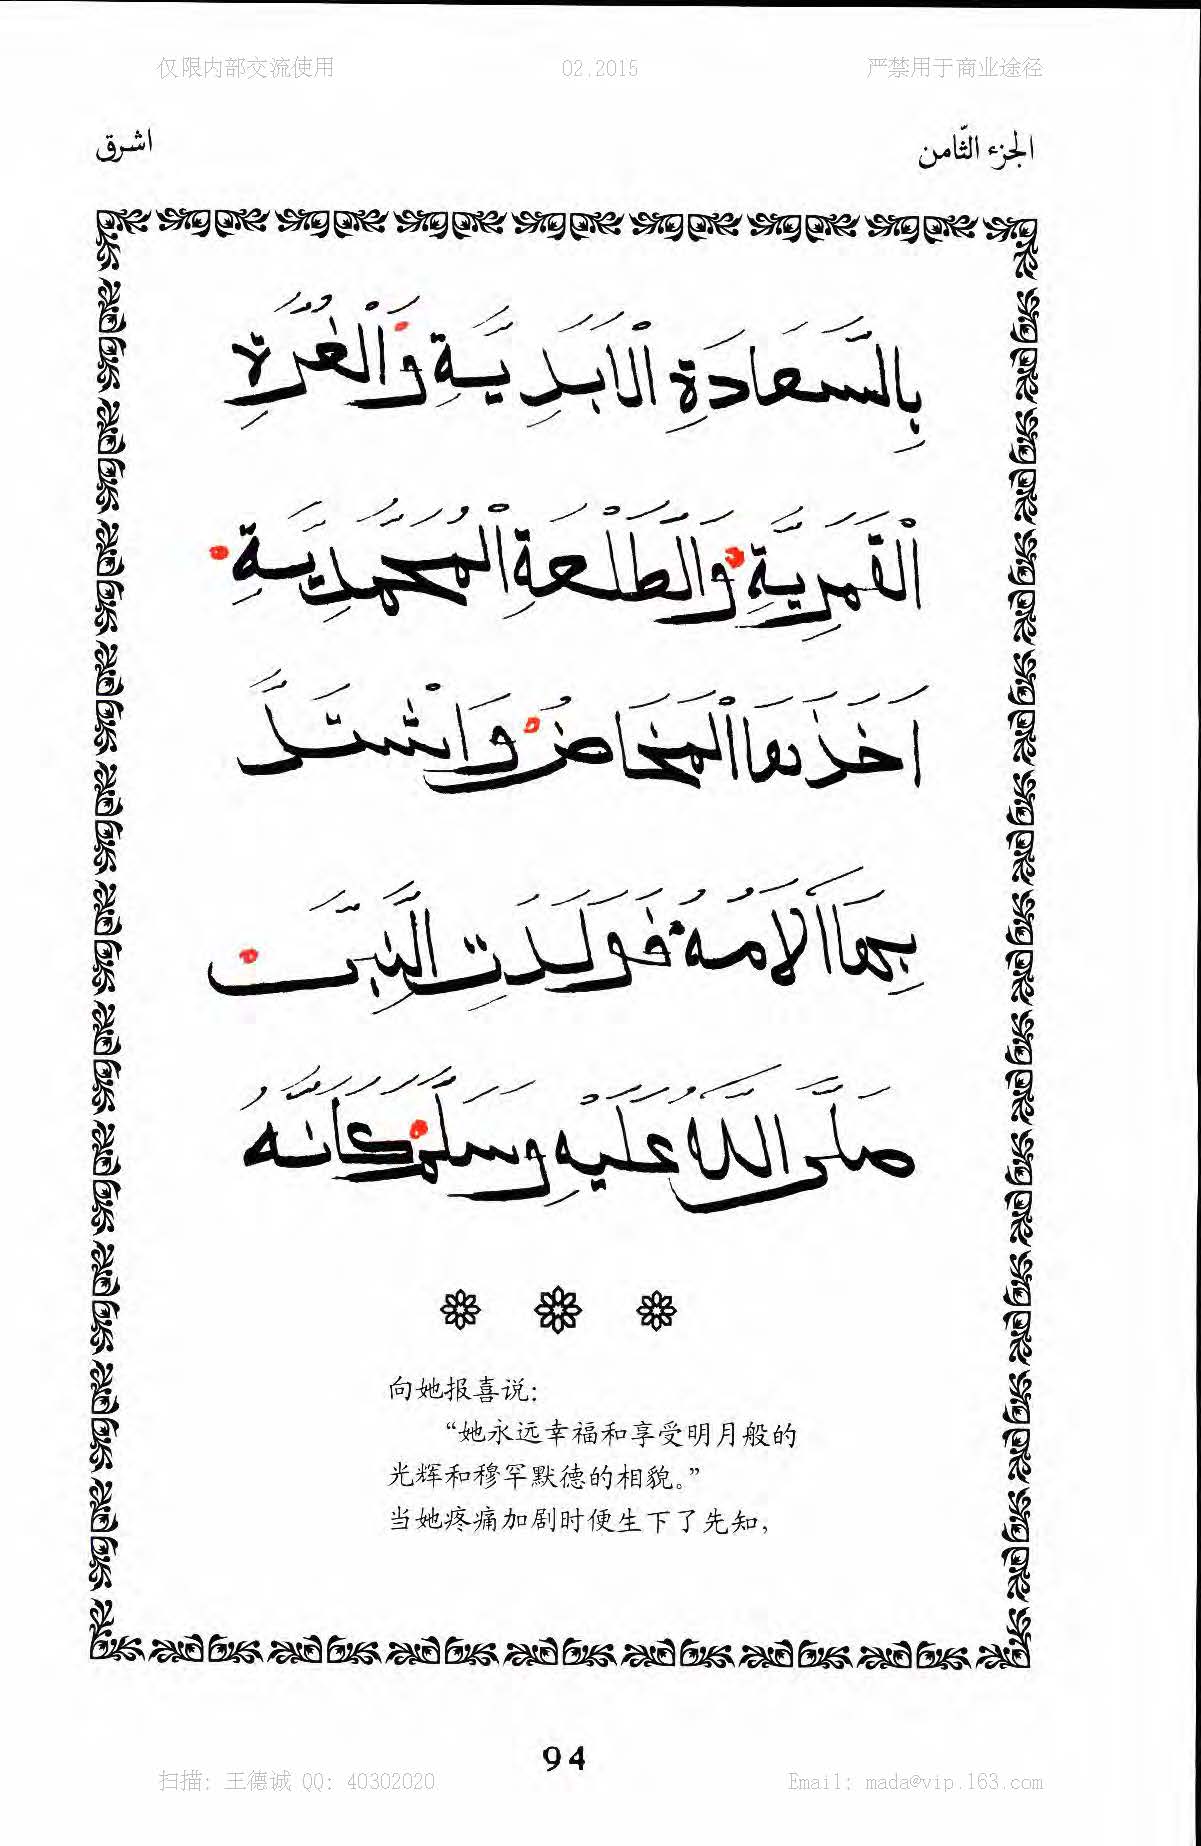 仅限内部交流使用 02.2015 严禁用于商业途径
الجزء الثّامن اشرق
بِالسَّعَادَةِ الْاَبَدِيَّةِ وَالْغُرَّةِ
الْقَمَرِيَّةِ وَالطَّلْعَةِ الْمُحَمَّدِيَّةِ
اَخَذَهَا الْمَخَاضُ وَاشْتَدَّ
بِهَا الْاَمْهُ فَوَلَدَتِ النَّبِىَّ
صَلَّى اللّٰهُ عَلَيْهِ وَسَلَّمَ كَاَنَّهُ
向她报喜说：
“她永远幸福和享受明月般的
光辉和穆罕默德的相貌。”
当她疼痛加剧时便生下了先知，
94
扫描: 王德诚 QQ: 40302020 Email: mada@vip.163.com